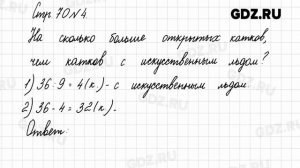 Стр. 70 №4. GDZ.RU
На сколько больше открытых катков,
чем катков с искусственным льдом?
1) 36 : 9 = 4 (к.) - с искусственным льдом.
2) 36 - 4 = 32 (к.) -
Ответ:
GDZ.RU GDZ.RU